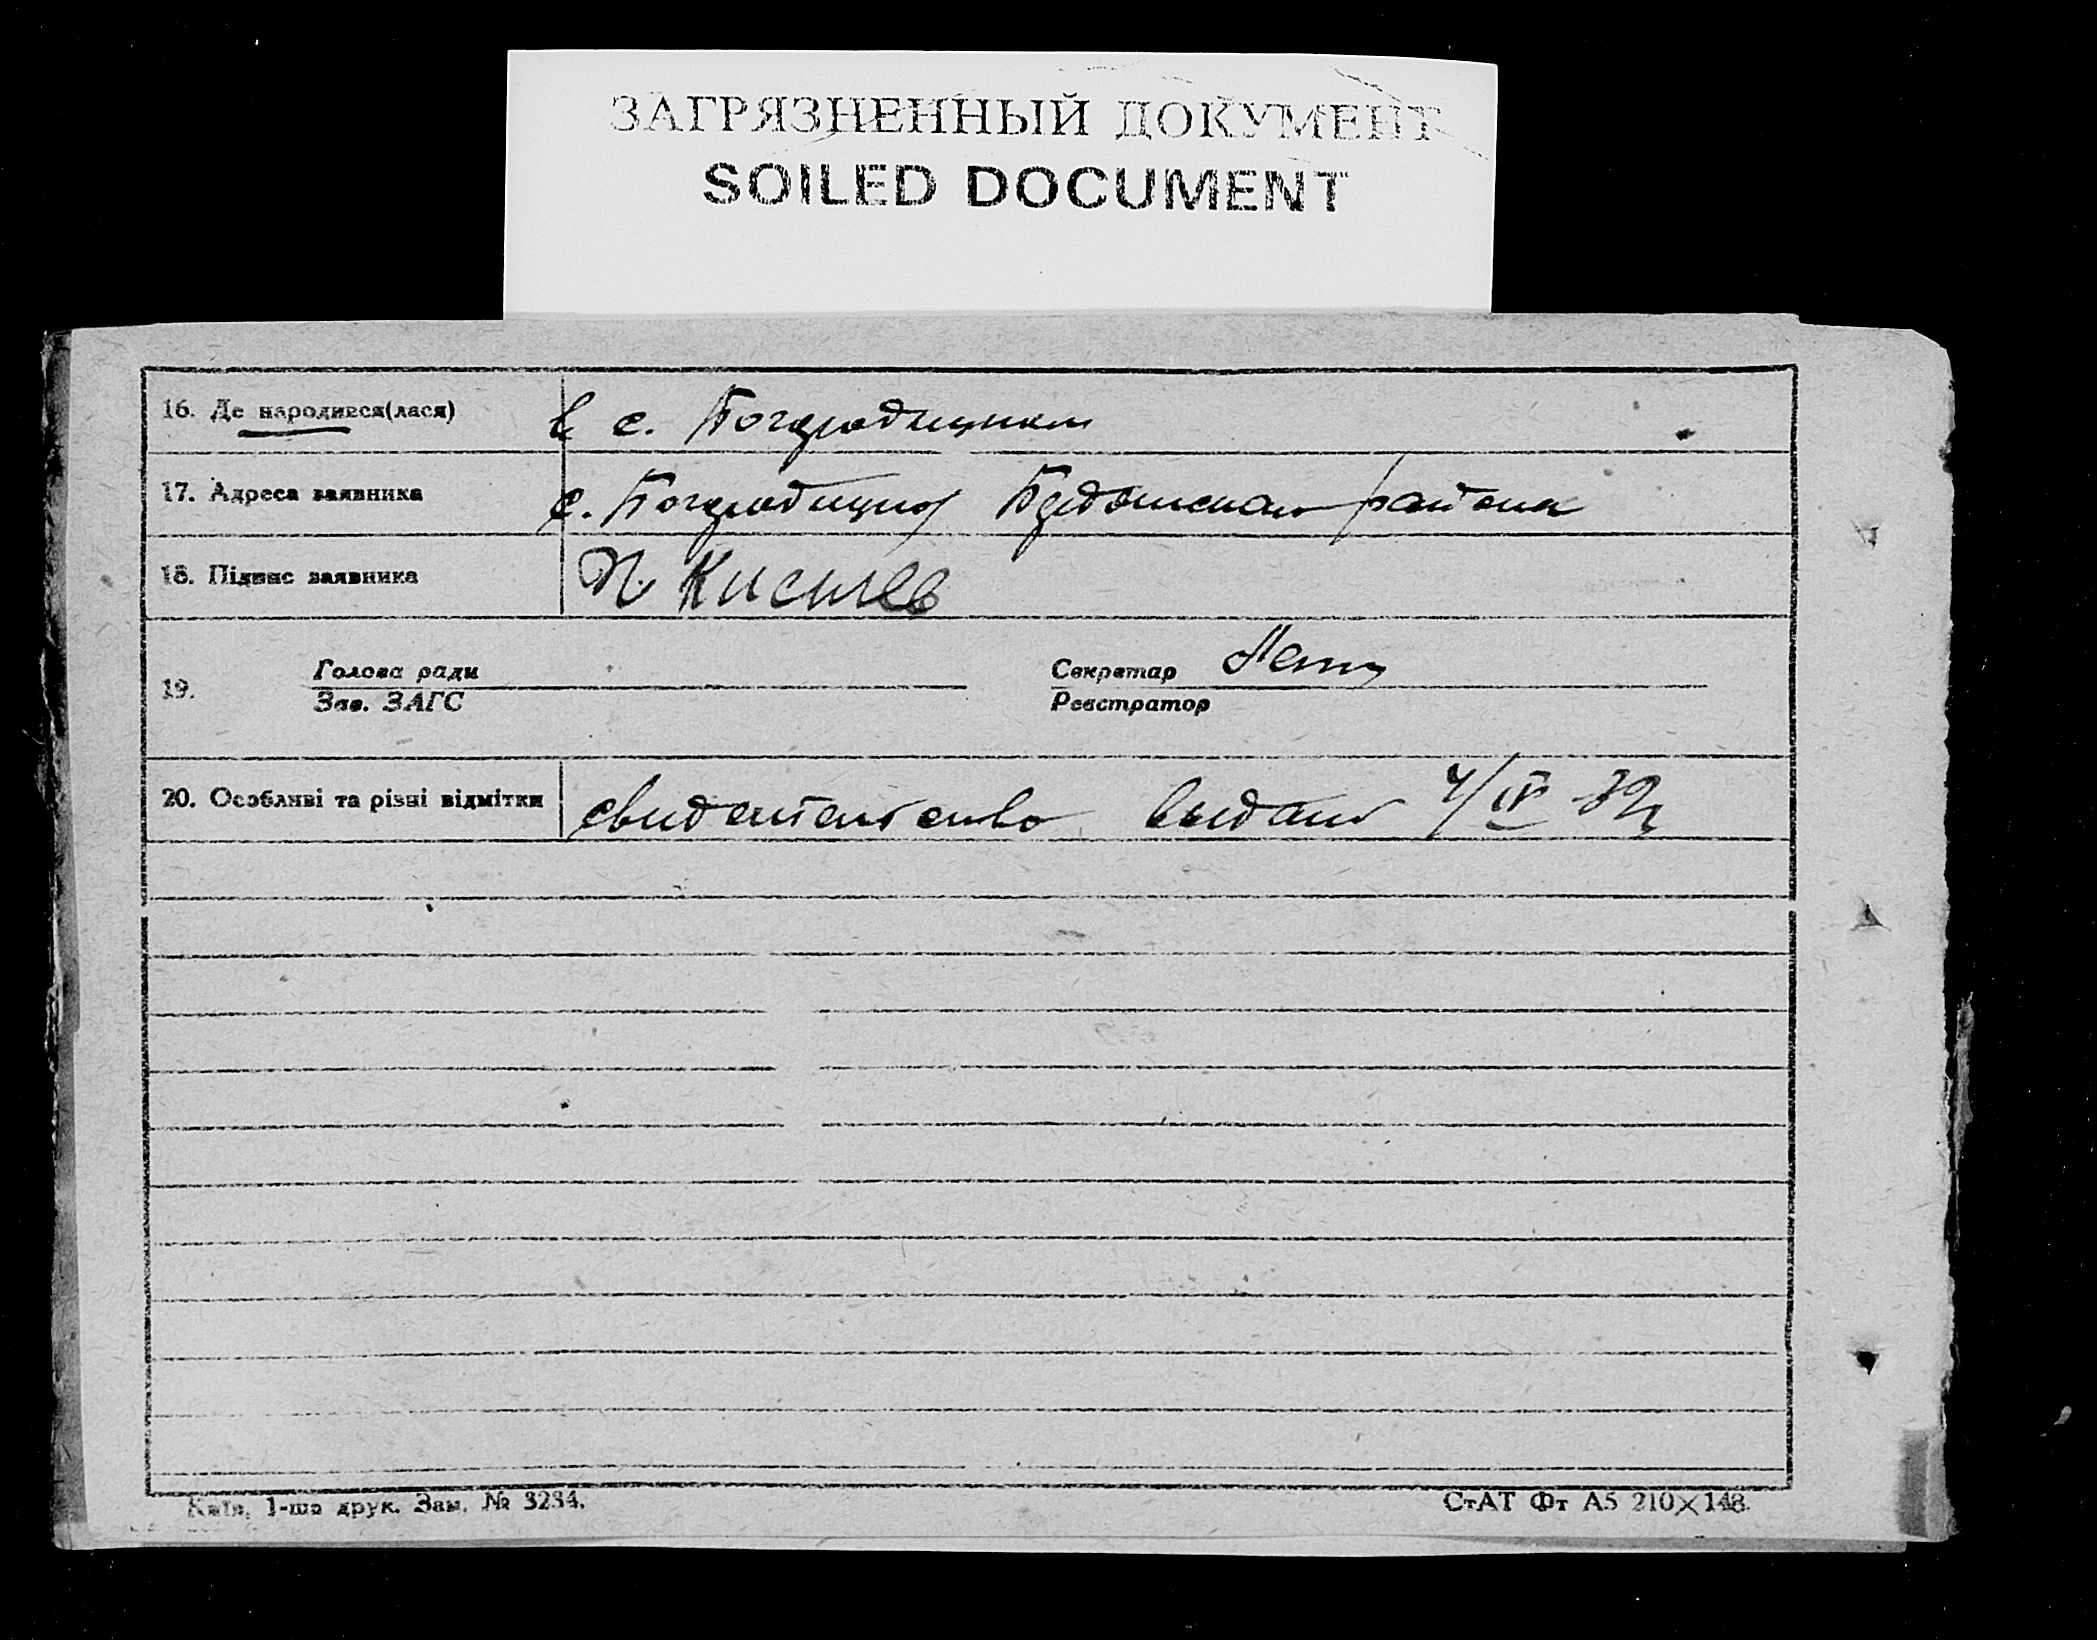 ЗАГРЯЗНЕННЫЙ ДОКУМЕНТ
SOILED DOCUMENT
16. Де народився(лася) в с.
17. Адреса заявника с. района
18. Підпис заявника П. Киселев
19. Голова ради Секретар
Зав. ЗАГС Реєстратор
20. Особливі та різні відмітки свидетельство выдано 4/IV
Київ, 1-ша друк. Зам. № 3234.
СтАТ Фт А5 210×148.